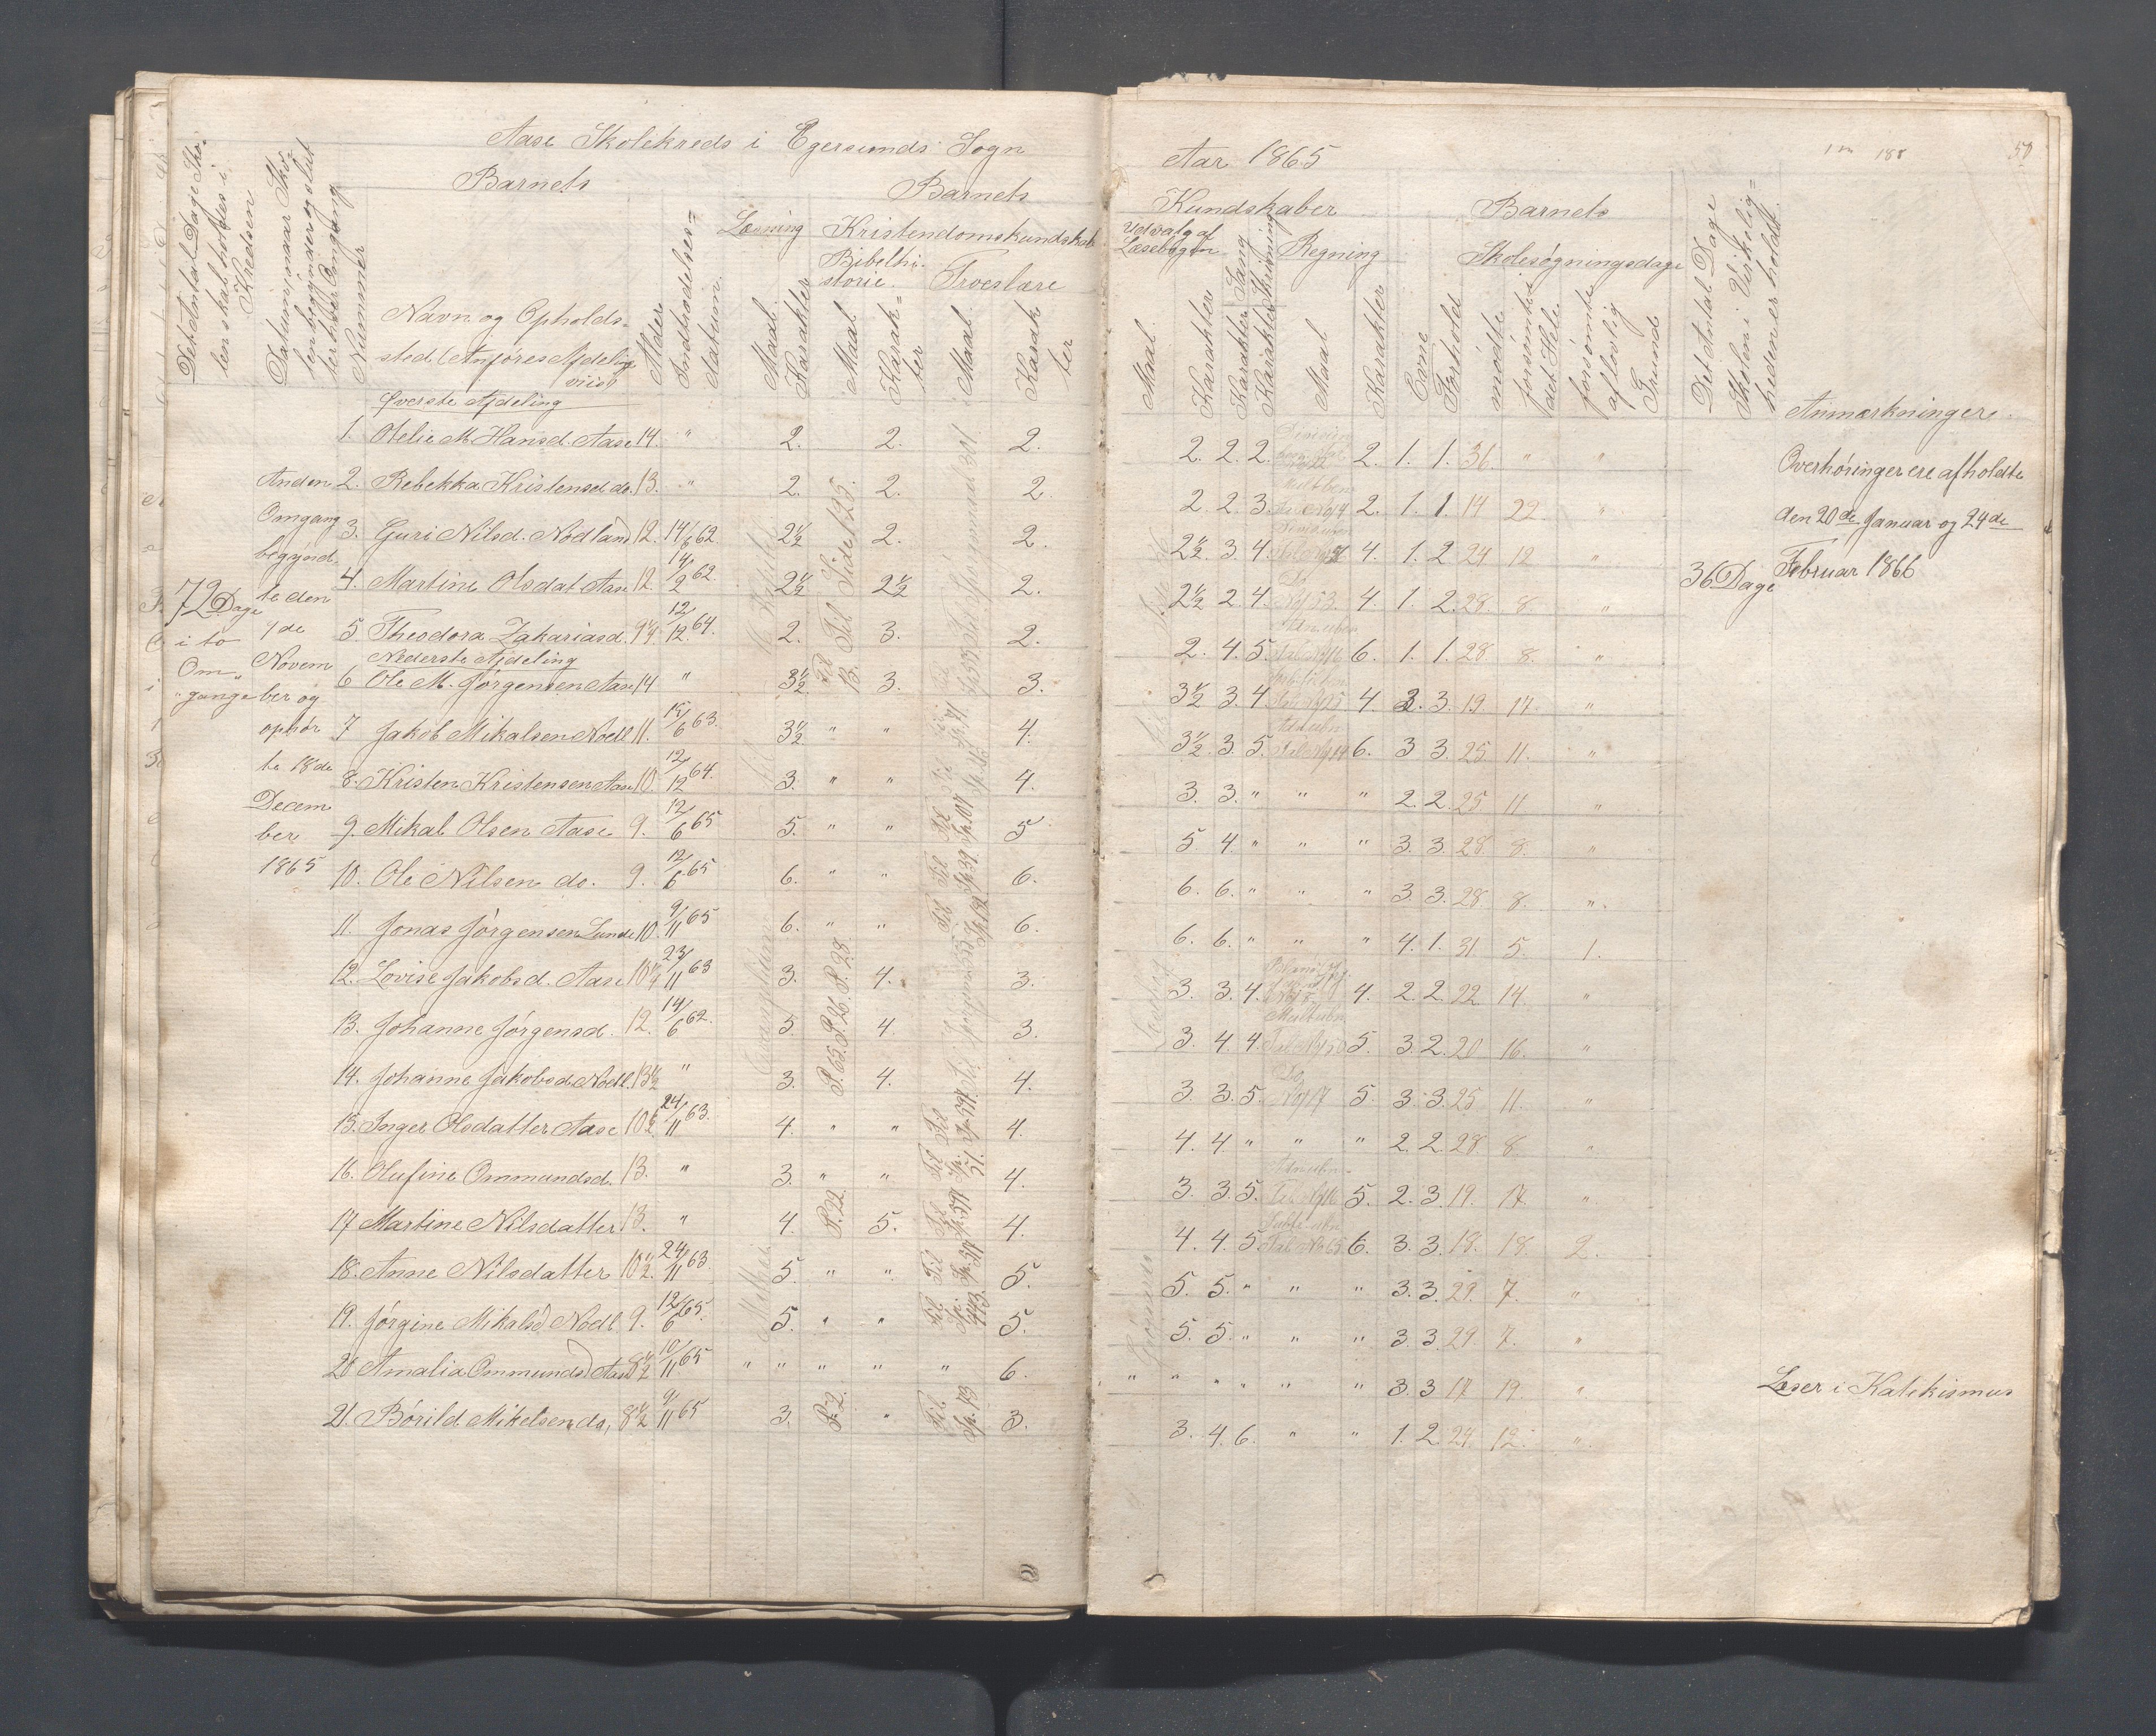 Aase Skolekreds i Egersunds Sogn
Aar 1865
50
Det Antal Dage Sko-
len skal holdes i
Kredsen
Datum i naar Sko-
len begynder og slut
ter hver Omgang
Nummer
Barnets
Navn og Opholds-
sted (Anføres Afdeling
viis)
Alder
Indtrædelses-
datum.
Barnets
Læsning
Maal.
Karakter
Kristendomskundskab
Bibelhi-
storie.
Maal
Karak-
ter
Troeslære
Maal.
Karak
ter
Kundskaber
Udvalg af
Læsebogen
Maal.
Karakter
Sang
Karakter
Skrivning
Karakter
Regning
Maal
Karakter
Barnets
Evne
Forhold
Skolesøgningsdage
mødte
forsømte
det Hele
forsømte
af lovlig
Grund
Det Antal Dage
Skolen i Virkelig-
heden er holdt.
Anmærkninger.
72 Dage
i to
Om-
gange
Anden
Omgang
begynd
te den
7de
Novem
ber og
ophør
te 18de
Decem
ber
1865
Øverste Afdeling
1. Olelie M. Hansd. Aase 14. " 2. 2. 2. 2. 2. 2. 2. 1. 1. 36. " "
2. Rebekka Kristensd. do. 13. " 2. 2. 2. 2. 2. 3. 2. 1. 1. 14 22. "
3. Guri Nilsd. Nodland 12. 14/6 62. 2½ 2. 2. 2½. 3. 4. 4. 1. 2 24 12 "
4. Martine Olsdat. Aase 12. 14/9 62. 2½ 2½ 2. 2½ 2. 4. 4. 1. 2. 28. 8. "
5. Theodora Zakariasd. 9¼ 12/12 64. 2. 3. 2. 2. 4. 5. 6. 1. 1. 28. 8. "
Nederste Afdeling
6 Ole M. Jørgensen Aase 14 " 3½ 3. 3. 3½ 3. 4 4. 3. 19. 17. "
7 Jakob Mikalsen Nodl 11. 15/6 63. 3½ " " 4. 3½. 3. 5. 6. 3 3. 25. 11. "
8. Kristen Kristensen Aase 10. 12/12 64. 3. " " 4. 3. 3. " " " 2. 2. 25. 11 "
9. Mikal Olsen Aase 9. 12/6 65 5. " " 5 5 4 " " " 3. 3. 28. 8. "
10. Ole Nilsen do. 9. 12/6 65 6. " " 6. 6. 6. " " " 3. 3. 28 8. "
11. Jonas Jørgensen Lunde 10. 9/11 65 6. " " 6. 6. 6. " " " 4. 1. 31. 5. 1.
12. Lovise Jakobsd. Aase 10¼ 23/11 63 3. 4. 3. 3. 3. 4. 4. 2. 2. 22. 14. "
13. Johanne Jørgensd. 12. 14/6 62. 5. 4. 3. 3. 4. 4. 5. 3. 2. 20 16. "
14. Johanne Jakobsd. Nodl. 13½ " 3. 4. 4. 3. 3. 5. 5. 3. 3. 25 11. "
15. Inger Olsdatter Aase 10½ 24/11 63. 4. " " 4. 4. 4. " " " 2. 2. 28 8. "
16. Olufine Ommundsd. 13. " 3. " " 4. 3. 3. 5. 5. 2. 3. 19. 17. "
17 Martine Nilsdatter 13. " 4. 5. 4. 4. 4. 5. 6. 3. 3. 18. 18. 2.
18. Anne Nilsdatter 10½ 24/11 63. 5. " " 5. 5. 5. " " " 3. 3. 29. 7. "
19. Jørgine Mikalsd. Nodl. 9. 12/6 65. 5. " " 5. 5. 5. " " " 3. 3. 29. 7. "
20 Amalia Ommundsd Aase 8½ 10/11 65 " " " " " 6. " " " " " " 3. 3 17 19. "
21. Børild Mikelsen do, 8½ 9/11 65 3. " 3. 3. 4. 6. " " 1. 2. 24. 12. "
36 Dage
Overhøringer ere afholdte
den 20de Januar og 24de
Februar 1866
Læser i Katekismus
Til Side 125.
P. 65. P. 26. P. 28.
P. 22.
P. 2.